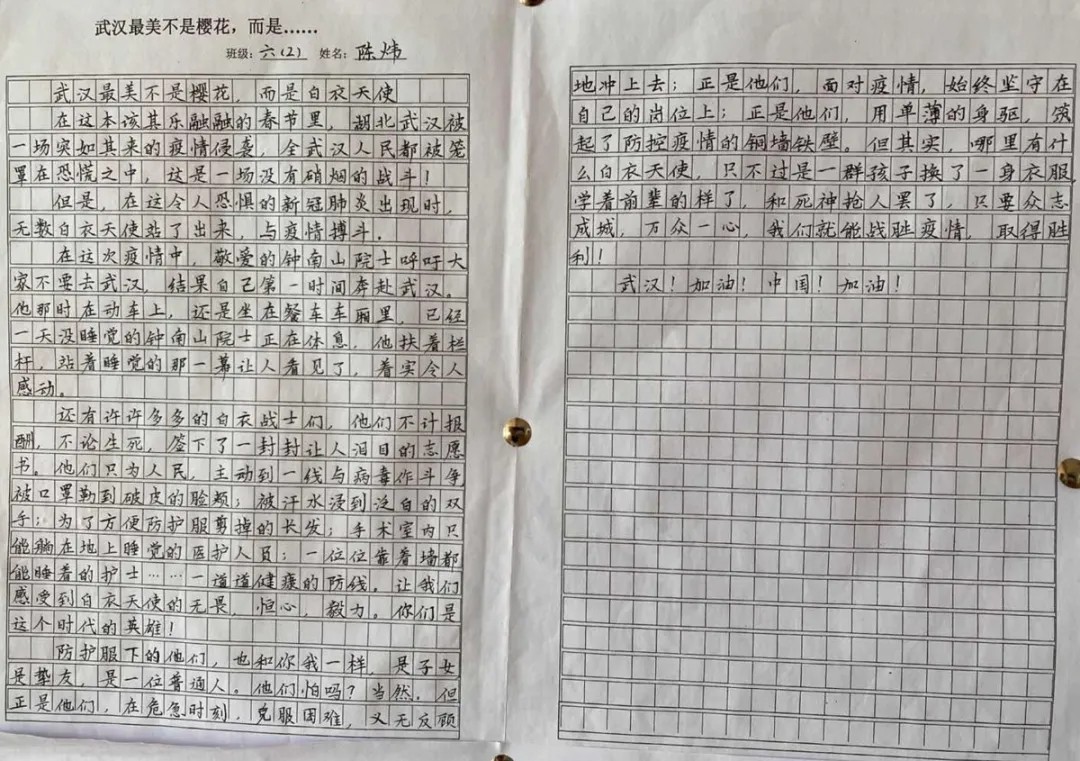 武汉最美不是樱花，而是……
班级：六（2） 姓名：陈炜
武汉最美不是樱花，而是白衣天使
在这本该其乐融融的春节里，湖北武汉被
一场突如其来的疫情侵袭，全武汉人民都被笼
罩在恐慌之中，这是一场没有硝烟的战斗！
但是，在这令人恐惧的新冠肺炎出现时，
无数白衣天使站了出来，与疫情搏斗．
在这次疫情中，敬爱的钟南山院士呼吁大
家不要去武汉，结果自己第一时间奔赴武汉。
他那时在动车上，还是坐在餐车车厢里，已经
一天没睡觉的钟南山院士正在休息，他扶着栏
杆，站着睡觉的那一幕让人看见了，着实令人
感动。
还有许许多多的白衣战士们，他们不计报
酬，不论生死，签下了一封封让人泪目的志愿
书。他们只为人民，主动到一线与病毒作斗争
被口罩勒到破皮的脸颊；被汗水浸到泛白的双
手；为了方便防护服剪掉的长发；手术室内只
能躺在地上睡觉的医护人员；一位位靠着墙都
能睡着的护士……一道道健康的防线，让我们
感受到白衣天使的无畏，恒心，毅力。你们是
这个时代的英雄！
防护服下的他们，也和你我一样，是子女
是挚友，是一位普通人。他们怕吗？当然．但
正是他们，在危急时刻，克服困难，义无反顾
地冲上去；正是他们，面对疫情，始终坚守在
自己的岗位上；正是他们，用单薄的身驱，筑
起了防控疫情的铜墙铁壁。但其实，哪里有什
么白衣天使，只不过是一群孩子换了一身衣服，
学着前辈的样了，和死神抢人罢了，只要众志
成城，万众一心，我们就能战胜疫情，取得胜
利！
武汉！加油！中国！加油！